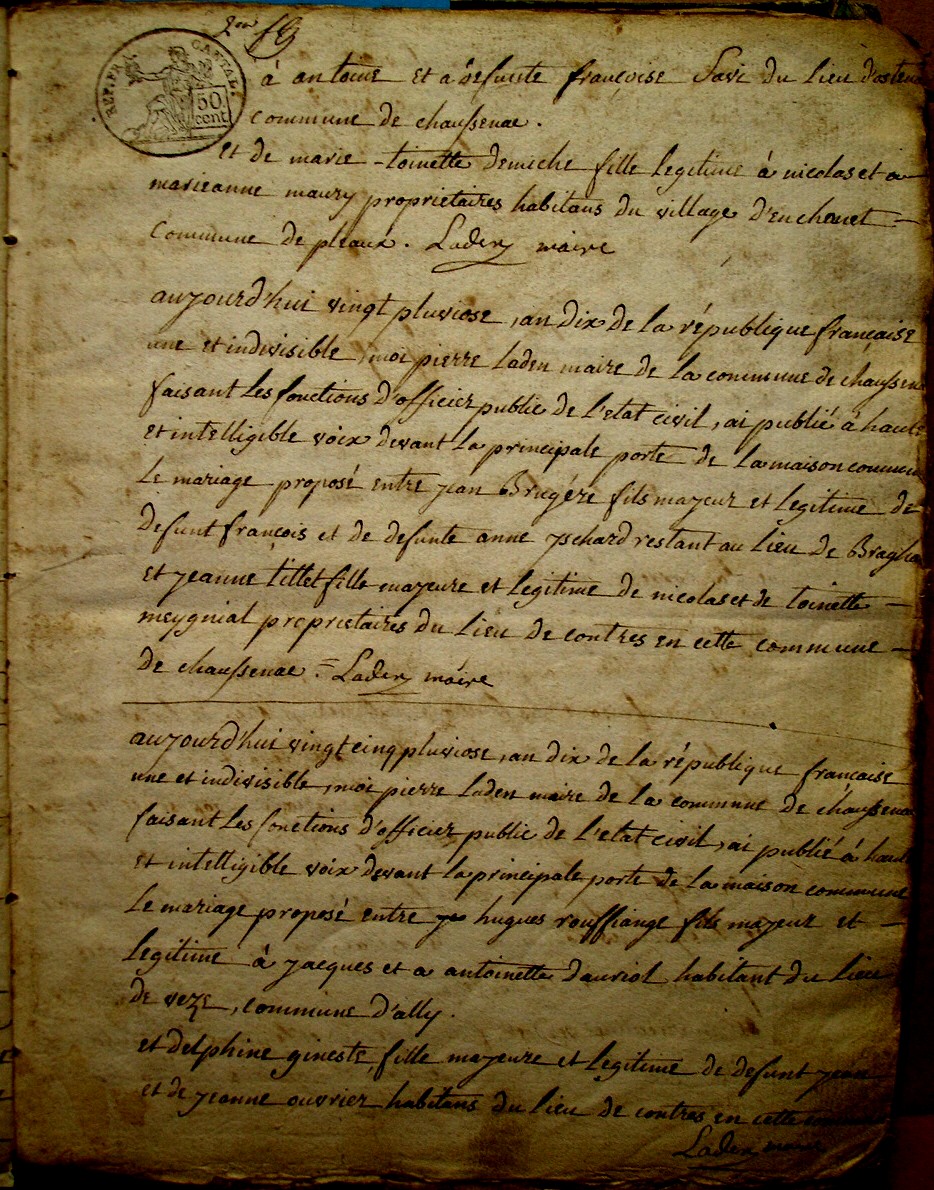 2em fo
REP. FRA. CANTAL.
50 cent
à antoine et a defunte françoise Savi du lieu
commune de chaussenac.
et de marie-toinette demiche fille legitime à nicolas et a
marieanne maury proprietaires habitans du village d'enchanet
commune de pleaux. Laden maire
aujourd'hui vingt pluviose, an dix de la république française
une et indivisible, moi pierre laden maire de la commune de chaussenac
faisant les fonctions d'officier public de l'etat civil, ai publié à haute
et intelligible voix devant la principale porte de la maison commune
le mariage proposé entre jean Brugére fils majeur et legitime de
defunt francois et de defunte anne yschard restant au lieu de
et jeanne tillet fille majeure et legitime de nicolas et de toinette
meygnial proprietaires du lieu de contres en cette commune
de chaussenac = Laden maire
aujourd'hui vingt cinq pluviose, an dix de la république francaise
une et indivisible, moi pierre laden maire de la commune de chaussenac
faisant les fonctions d'officier public de l'etat civil, ai publié à haute
et intelligible voix devant la principale porte de la maison commune
le mariage proposé entre hugues rouffiange fils majeur et
legitime à jacques et a antoinette dauriol habitant du lieu
de veze, commune d'ally.
et delphine gineste, fille majeure et legitime de defunt jean
et de jeanne ouvrier habitans du lieu de contres en cette commune
Laden maire